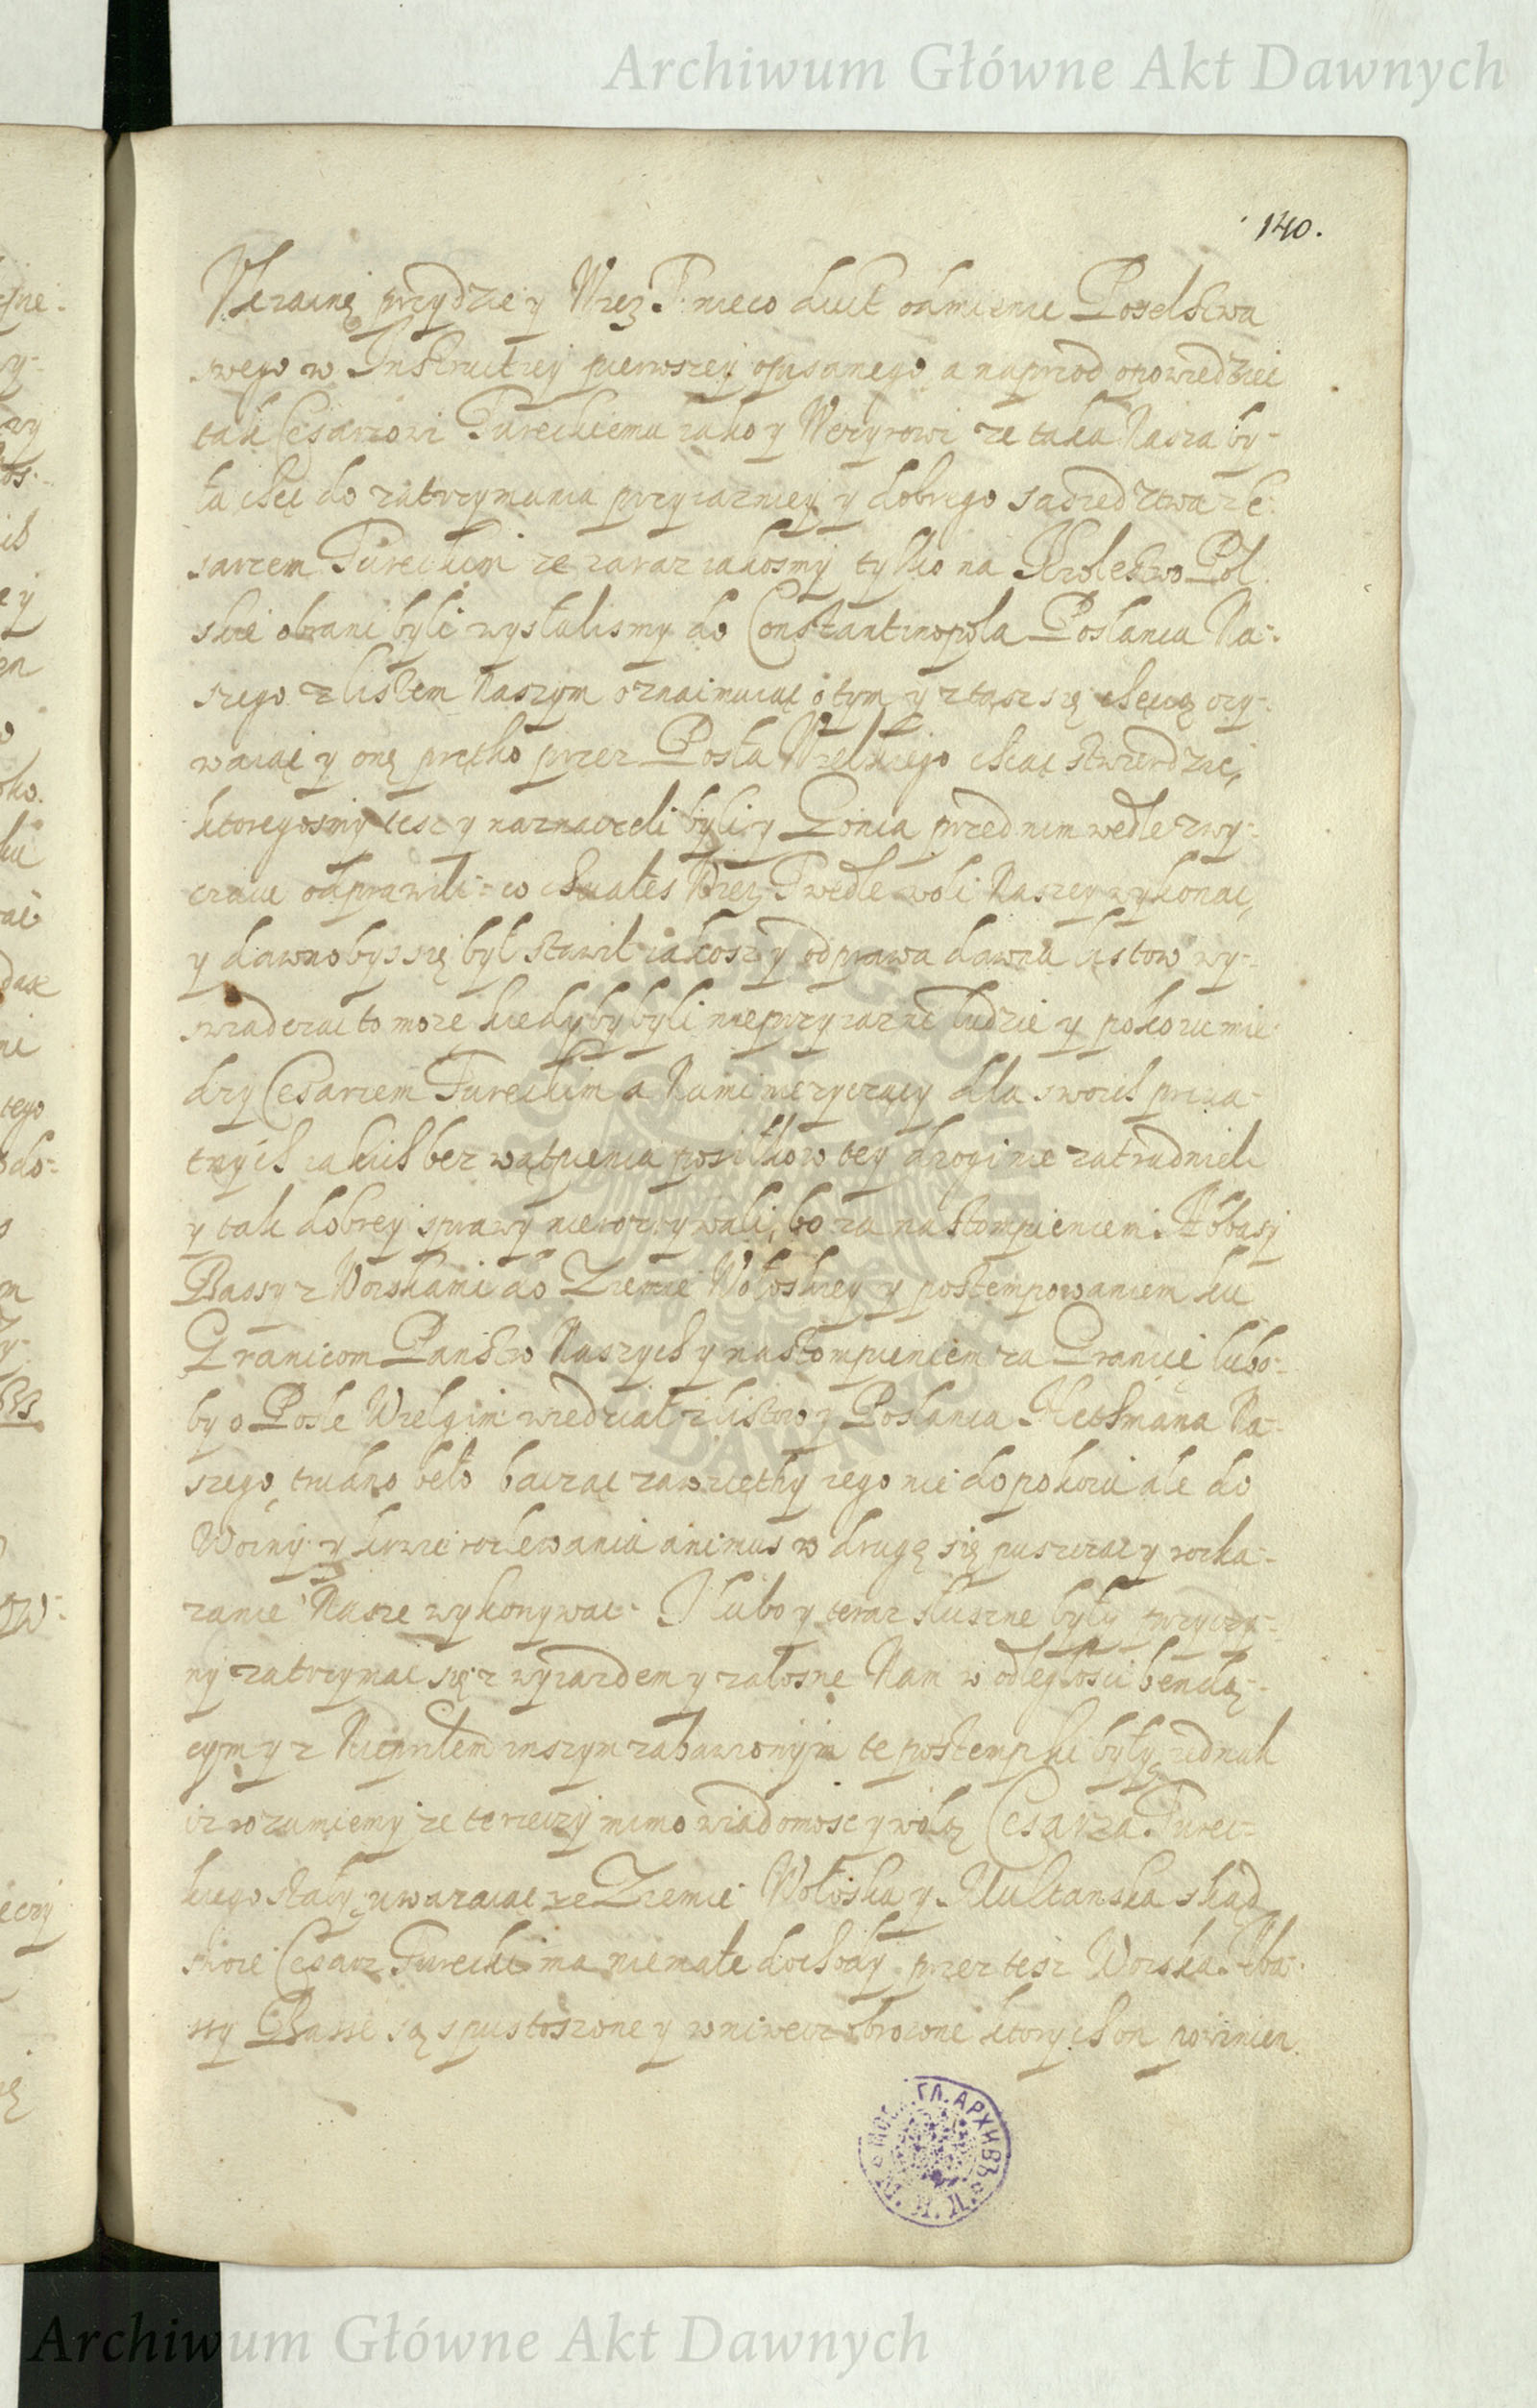 Archiwum Główne Akt Dawnych
140.
Ukrainę przydzie y Wrez. P. nieco dać odmienie Poselstwa
swego w Instructiey pierwszey opisanego, a naprzod opowiedziec
tak Cesarzowi Tureckiemu iako y Wezyrowi ze taka Nasza by-
ła chęć do zatrzymania przyiazniey y dobrego sąsiedztwa z Ce-
sarzem Tureckim ze zaraz iakosmy tylko na Krolestwo Pol-
skie obrani byli wysłalismy do Constantinopola Posłańca Na-
szego z listem Naszym oznaimuiąc o tym y z tasz się chęcią ozy-
waiąc y onę prętko przez Posła Wielkiego chcąc stwierdzić,
ktoregosmy tesz y naznaczeli byli y Gońca przed nim wedle zwy-
czaiu odprawili - co chciałes Wrez. P. wedle woli Naszey wykonać,
y dawnobys się był stawił iakosz y odprawa dawna listow wy-
swiadczać to moze kiedyby byli nieprzyiazni ludzie y pokoiu mie-
dzy Cesarzem Tureckim a Nami niezyczący dla swoich priua-
tnych iakich bez wątpienia posiłkow tey drogi nie zatrudnieli
y tak dobrey sprawy nierozrywali, bo za nastompieniem Abbasy
Bassy z Woiskami do Ziemie Wołoskiey y postempowaniem ku
Granicom Państw Naszych y nastompieniem za Granicę lubo-
by o Posle Wielgim wiedział z listow y Posłańca Hethmana Na-
szego, trudno beło bacząc zawziethy iego nie do pokoiu ale do
Woiny y krwie rozlewania animus w drogę się puszczać y rozka-
zanie Nasze wykonywać. I lubo y teraz słuszne były przyczy-
ny zatrzymać się z wyiazdem y załosne Nam w odległosci bendą-
cym y z Nieprzyiacielem inszym zabawionym te postempki były, iednak
iz rozumiemy ze te rzeczy mimo wiadomosc y wolą Cesarza Turec-
kiego stały, uwazaiąc ze Ziemie Wołoska y Multanska skąd
Cesarz Turecki ma niemałe dochody przez tesz Woiska Aba-
szy Basse są spustoszone y wniwecz obrocone ktorych on powinien
МОС. ГЛ. АРХИВЪ М. И. Д.
Archiwum Główne Akt Dawnych